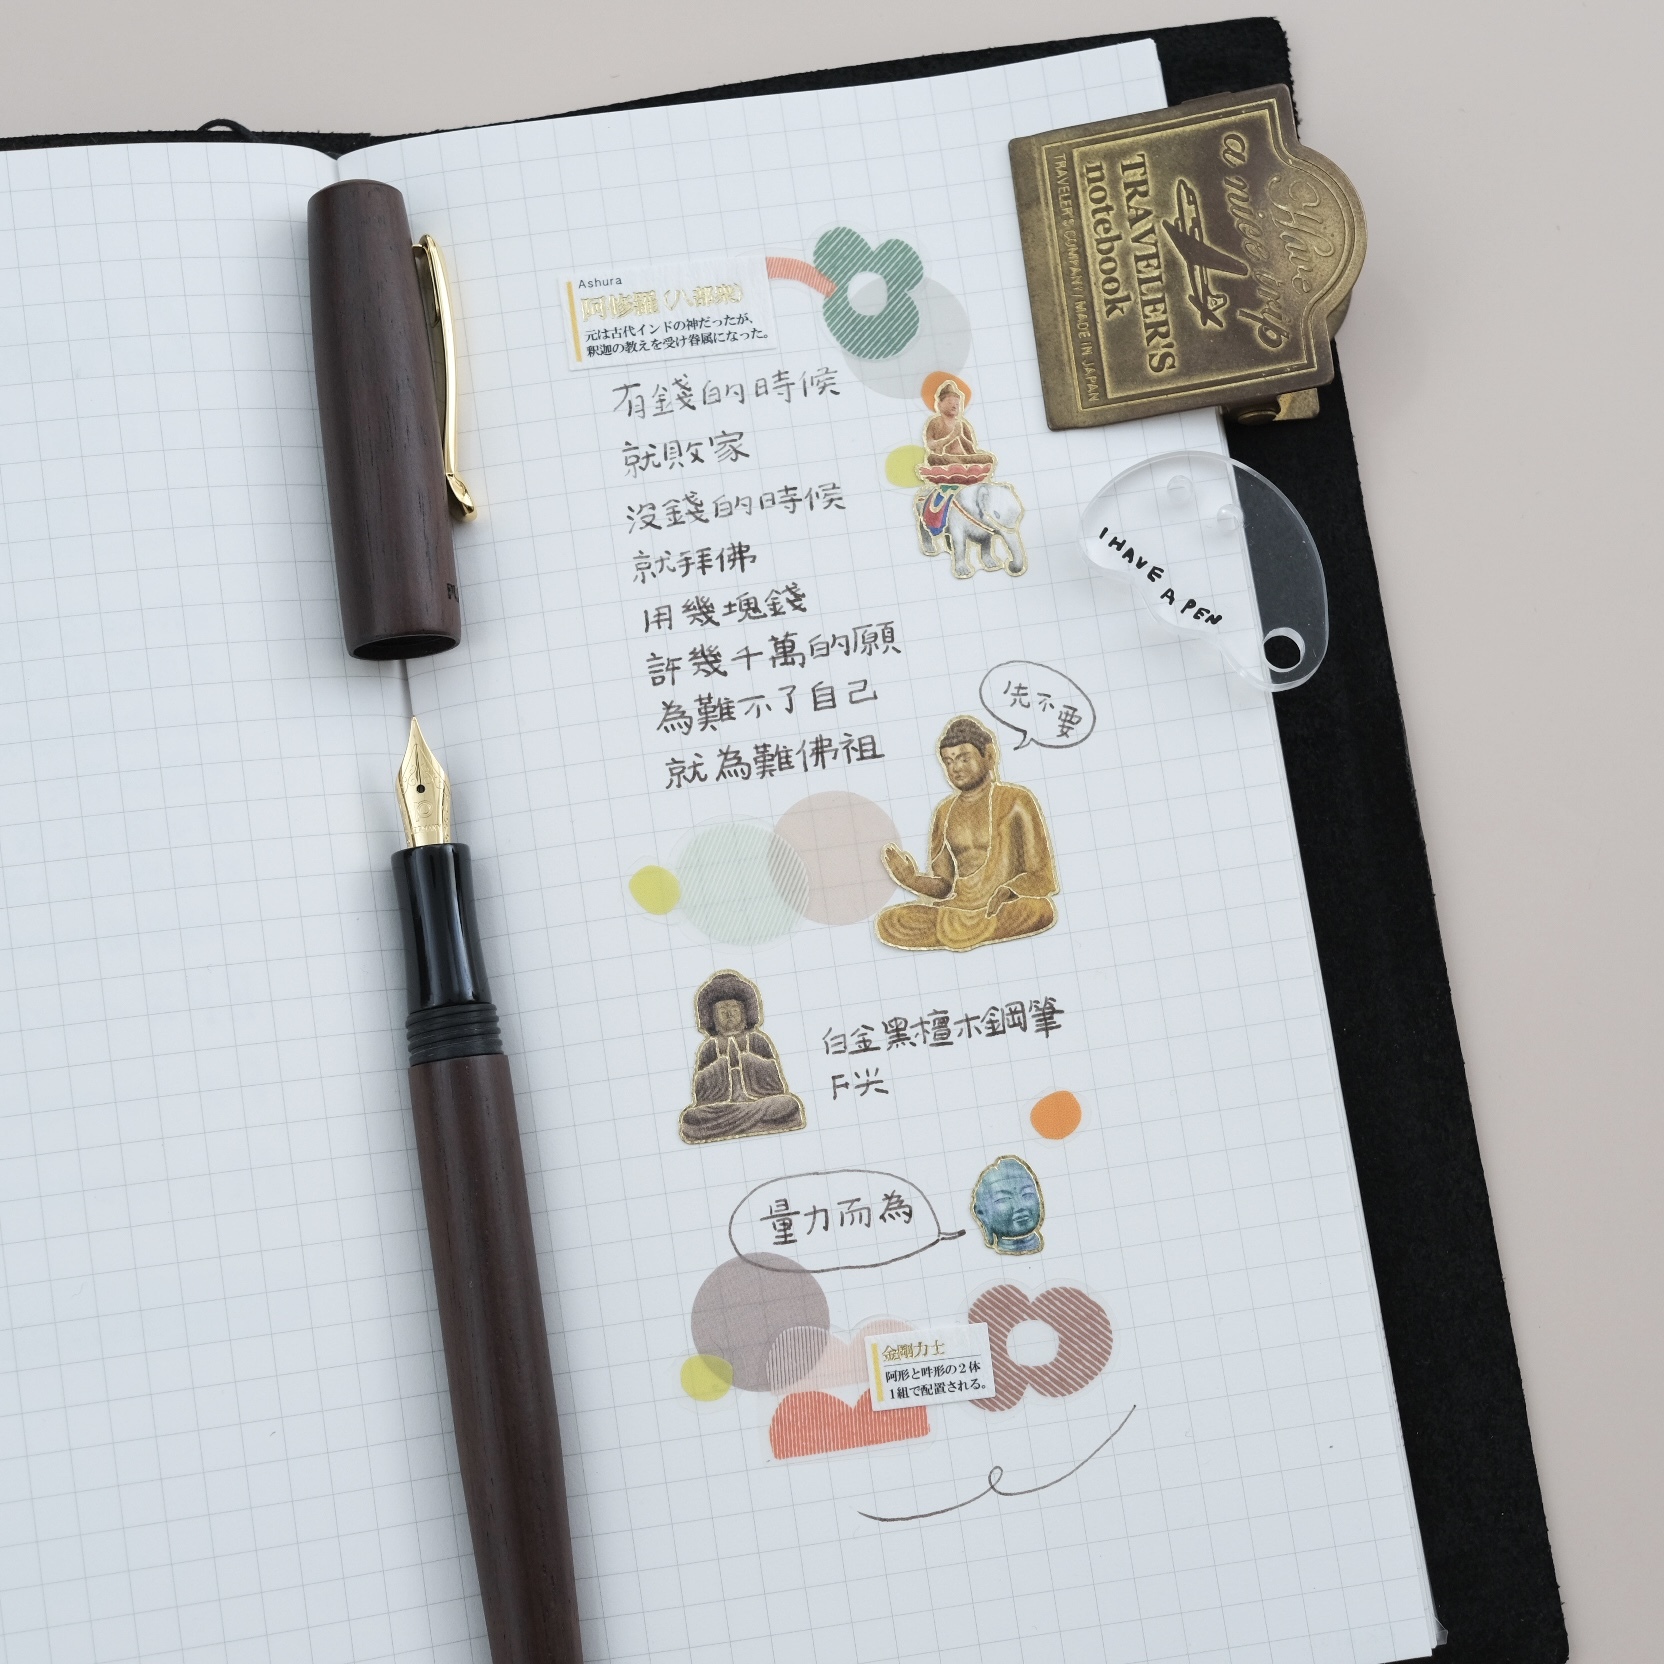 Ashura
阿修羅（八部衆）
元は古代インドの神だったが、
釈迦の教えを受け眷属になった。
有錢的時候
就敗家
沒錢的時候
就拜佛
用幾塊錢
許幾千萬的願
為難不了自己
就為難佛祖
先不要
白金黑檀木鋼筆
F尖
量力而為
金剛力士
阿形と吽形の2体
1組で配置される。
Have
a nice trip
TRAVELER'S
notebook
TRAVELER'S COMPANY MADE IN JAPAN
I HAVE A PEN